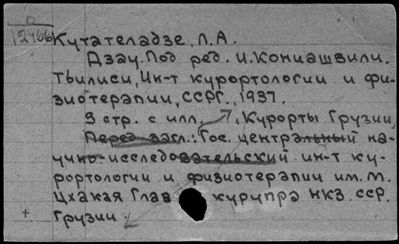 0
12466
Кутателадзе, Л. А.
Дзау. Под ред. И. Кониашвили.
Тбилиси, Ин-т курортологии и фи-
зиотерапии, ССРГ., 1937.
9 стр. с илл., Курорты Грузии,
Перед загл.: Гос. центральный на-
учно-исследовательский ин-т ку-
рортологии и физиотерапии им. М.
Цхакая Глав курупра НКЗ. ССР.
Грузии.